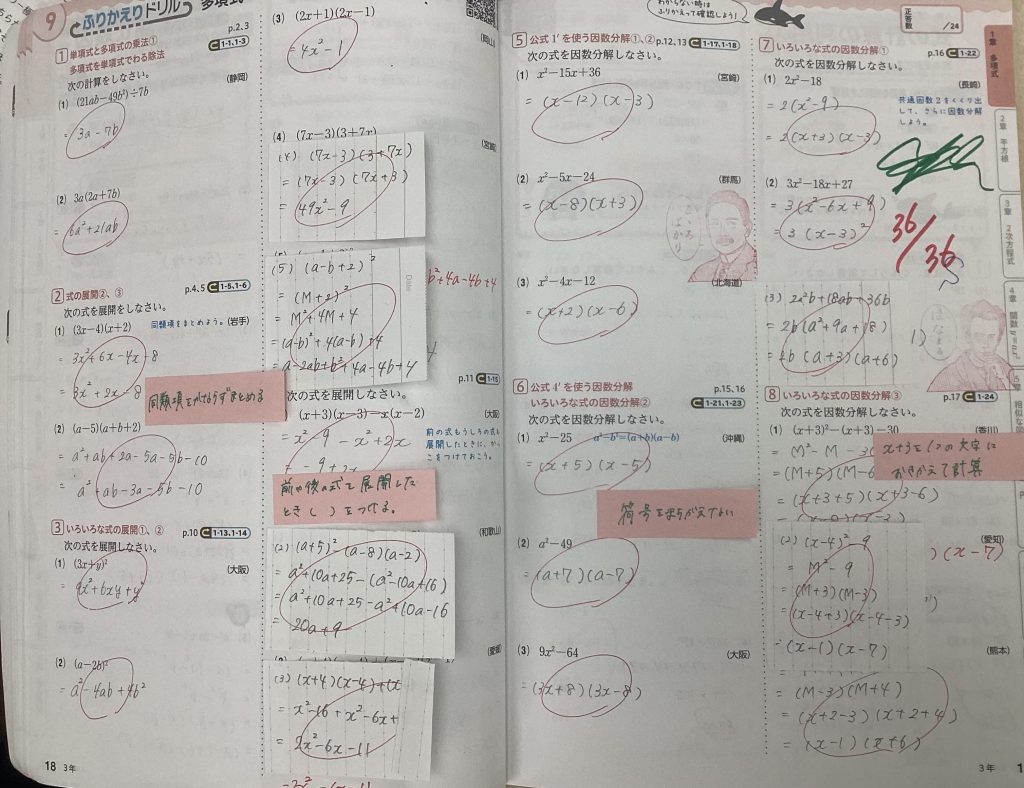 9 ふりかえりドリル 多項式
p.2.3
1 単項式と多項式の乗法①
多項式を単項式でわる除法
C 1-1.1-3
次の計算をしなさい。
(静岡)
(1) (21ab−49b²)÷7b
= 3a − 7b
(2) 3a(2a+7b)
= 6a² + 21ab
2 式の展開②、③
p.4、5 C 1-5.1-6
次の式を展開をしなさい。
(1) (3x−4)(x+2)
同類項をまとめよう。
(岩手)
= 3x² + 6x − 4x − 8
= 3x² + 2x − 8
同類項をわけらずまとめる
(2) (a−5)(a+b+2)
= a² + ab + 2a − 5a − 5b − 10
= a² + ab − 3a − 5b − 10
3 いろいろな式の展開①、②
p.10 C 1-13.1-14
次の式を展開しなさい。
(1) (3x+y)²
(大阪)
= 9x² + 6xy + y²
(2) (a−2b)²
= a² − 4ab + 4b²
18 3年
(3) (2x+1)(2x−1)
(岡山)
= 4x² − 1
(4) (7x−3)(3+7x)
(宮崎)
(4) (7x−3)(3+7x)
= (7x−3)(7x+3)
= 49x² − 9
(5) (a−b+2)²
= (M+2)²
= M² + 4M + 4
= (a−b)² + 4(a−b) + 4
= a−2ab+b² + 4a − 4b + 4
Date
b²+4a−4b+4
p.11 C 1-15
次の式を展開しなさい。
(x+3)(x−3)−x(x−2)
(大阪)
= x² − 9 − x² + 2x
= −9 + 2x
前の式もうしろの式も
展開したときに、かっ
こをつけておこう。
前や後の式を展開した
とき( )をつける。
(和歌山)
(2) (a+5)² (a−8)(a−2)
= a² + 10a + 25 − (a² − 10a + 16)
= a² + 10a + 25 − a² + 10a − 16
= 20a + 9
(愛媛)
(3) (x+4)(x−4)+(x
= x² − 16 + x² − 6x +
= 2x² − 6x − 11
わからない時は
ふりかえって確認しよう!
正答数 /24
5 公式1′を使う因数分解①、②
p.12、13 C 1-17.1-18
次の式を因数分解しなさい。
(1) x²−15x+36
(宮崎)
= (x−12)(x−3)
(2) x²−5x−24
(群馬)
= (x−8)(x+3)
(3) x²−4x−12
(北海道)
= (x+2)(x−6)
6 公式4′を使う因数分解
いろいろな式の因数分解②
p.15、16
C 1-21.1-23
次の式を因数分解しなさい。
(1) x²−25
a²−b²=(a+b)(a−b)
(沖縄)
= (x+5)(x−5)
符号をまちがえない
(2) a²−49
= (a+7)(a−7)
(3) 9x²−64
(大阪)
= (3x+8)(3x−8)
7 いろいろな式の因数分解①
p.16 C 1-22
次の式を因数分解しなさい。
(1) 2x²−18
(長崎)
= 2(x²−9)
= 2(x+3)(x−3)
共通因数2をくくり出
して、さらに因数分解
しよう。
(2) 3x²−18x+27
= 3(x²−6x+9)
= 3(x−3)²
36/36
(3) 2a²b+18ab+36b
= 2b(a²+9a+18)
= 2b(a+3)(a+6)
8 いろいろな式の因数分解③
p.17 C 1-24
次の式を因数分解しなさい。
(1) (x+3)²−(x+3)−30
(香川)
= M² − M − 30
= (M+5)(M−6
= (x+3+5)(x+3−6)
x+3を1つの文字に
おきかえて計算
(愛知)
(2) (x−4)²−9
= M² − 9
= (M+3)(M−3)
= (x−4+3)(x−4−3)
= (x−1)(x−7)
)(x−7)
(熊本)
= (M−3)(M+4)
= (x+2−3)(x+2+4)
= (x−1)(x+6)
3年
1章 多項式
2章 平方根
3章 2次方程式
4章 関数 y=ax²
5章 相似な図